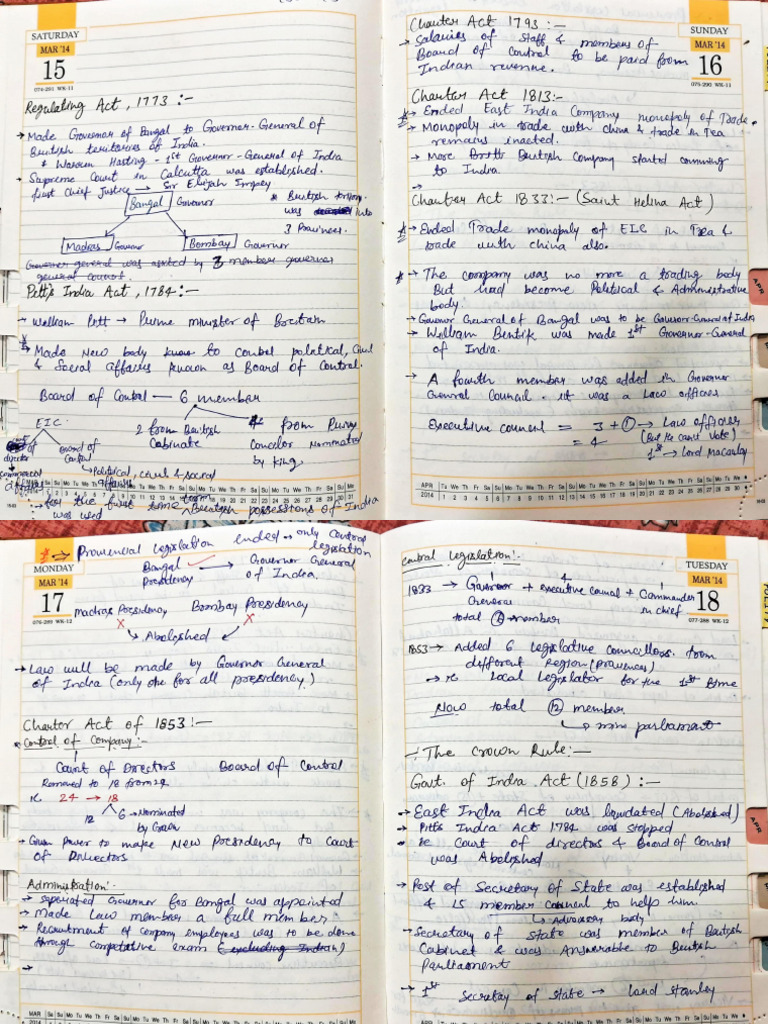 SATURDAY
MAR '14
15
074-291 WK-11
Regulating Act, 1773 :-
→ Made Governor of Bangal to Governor-General of
British teritories of India.
* Warren Hasting - 1st Governor-General of India
→ Supreme Court in Calcutta was established.
first Chief Justice → Sir Elijah Impey
Bangal Governor
* British
was into
3 Provinces.
Madras Governor
Bombay Governor
Governor general was assisted by 3 member governor
general council.
Pitt's India Act, 1784 :-
→ William Pitt → Prime minister of Britain
* Made New body know to control political, Civil
& Social affairs known as Board of Control.
Board of Control — 6 member
2 from British
Cabinate
4 from Privy
Councelor Nominated
by King
EIC
of
director
Board of
Control
commercial
affairs
→ Political, civil & social
affairs
→ for the first time term British possessions of India
was used
SUNDAY
MAR '14
16
075-290 WK-11
Charter Act 1793 :-
→ Salaries of staff & members of
Board of Control to be paid from
Indian revenue.
Charter Act 1813 :-
* Ended East India Company monopoly of Trade.
→ Monopoly in trade with china & trade in Tea
remains inacted.
→ More British Company started comming
to India.
→
Charter Act 1833 :- (Saint Helina Act)
* Ended Trade monopoly of EIC in Tea &
trade with china also.
* The company was no more a trading body
But had become Political & Administrative
body.
→ Govenor General of Bangal was to be Govenor-General of India
→ William Bentik was made 1st Governor-General
of India.
→ A fourth member was added in Governor
General Council. it was a Law officer
Executive council = 3 + 1 → Law officer
(But He can't vote)
= 4
1st → Lord Macaulay
APR
2014
MONDAY
MAR '14
17
076-289 WK-12
* → Provincial legislation ended → only central
legislation
Bangal
Presidency
→ Governor General
of India.
Madras Presidency Bombay Presidency
X X
→ Abolished
→ Law will be made by Governor General
of India (only one for all presidency.)
Charter Act of 1853 :-
* Control of Company :-
Court of Directors Board of Control
Removed to 18 from 24
ie 24 → 18
12 6 → Nominated
by Crown
→ Given Power to make New Presidency to Court
of Directors
Administration :-
→ seperated Governor for Bangal was appointed
→ Made Law member a full member
→ Recruitment of company employees was to be done
through competative exam (excluding Indian)
→
MAR
2014
TUESDAY
MAR '14
18
077-288 WK-12
Central Legislation :-
1833 → Governor
General
+ executive council + Commander
in chief
1 4 1
total 6 member
1853 → Added 6 Legislative Councillors. from
different Region (provinces)
→ ie Local Legislator for the 1st time
Now total 12 member
→ mini parliament
- : The Crown Rule :-
Govt. of India Act (1858) :-
→ East India Act was liquidated (Abolished)
→ Pitts India Act 1784 was stopped
→ ie Court of directors & Board of Control
was Abolished
→ Post of Secretary of State was established
& 15 member council to help him.
→ Advisory body
→ Secretary of state was member of British
Cabinet & was Answerable to British
Parliament
→ 1st Secretary of state → Lord Stanley
APR